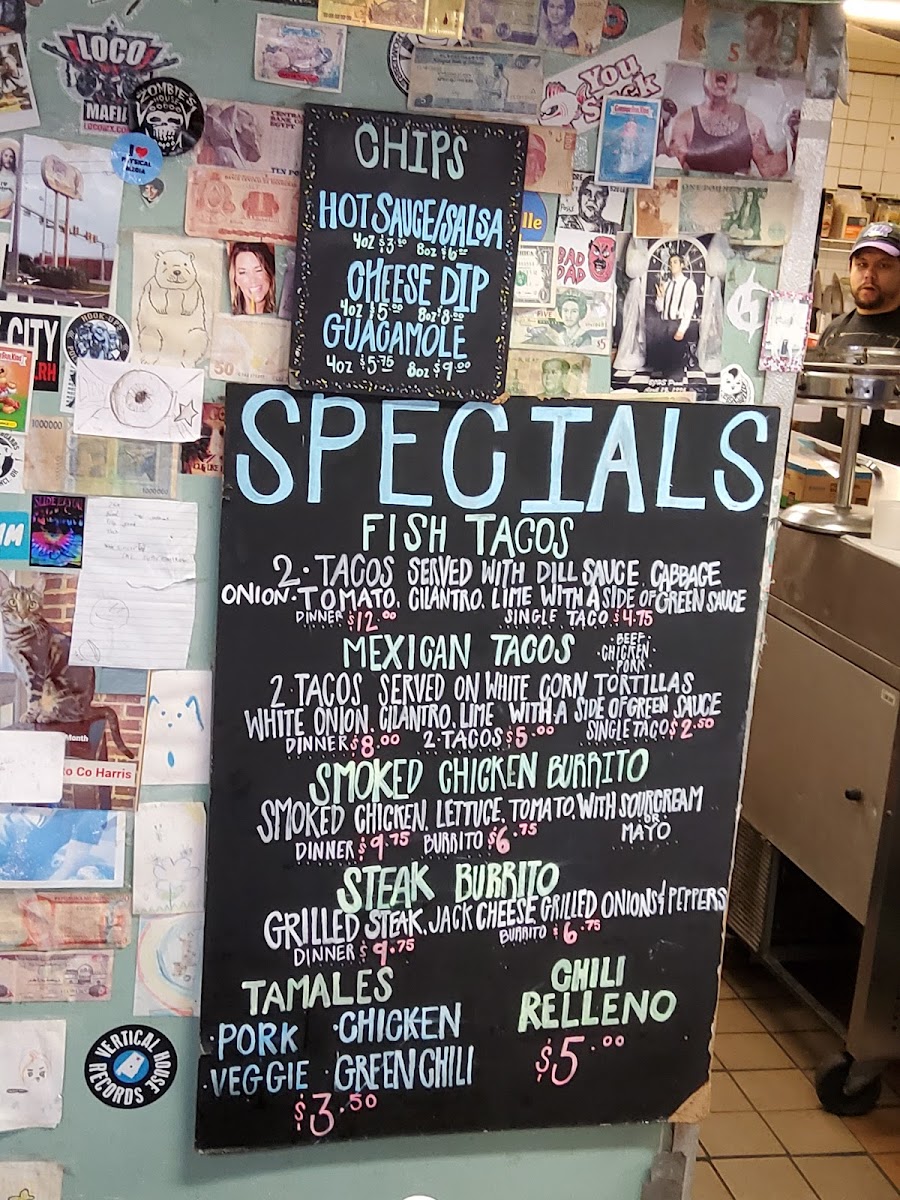 LOCO
MAFIA
ZOMBIE'S
HOUSE
You
Suck
BAD
DAD
CITY
HOOK-UPS
50
1000000
1000000
Month
to Co Harris
VERTICAL HOUSE
RECORDS
CHIPS
HOT SAUCE/SALSA
4oz $3.50 8oz $6.00
CHEESE DIP
4oz $5.00 8oz $8.00
GUACAMOLE
4oz $5.75 8oz $9.00
SPECIALS
FISH TACOS
2 · TACOS SERVED WITH DILL SAUCE, CABBAGE
ONION · TOMATO, CILANTRO, LIME WITH A SIDE OF GREEN SAUCE
DINNER $12.00 SINGLE TACO $4.75
MEXICAN TACOS · BEEF ·
· CHICKEN ·
· PORK ·
2 · TACOS SERVED ON WHITE CORN TORTILLAS
WHITE ONION, CILANTRO, LIME WITH A SIDE OF GREEN SAUCE
DINNER $8.00 2 · TACOS $5.00 SINGLE TACO $2.50
SMOKED CHICKEN BURRITO
SMOKED CHICKEN, LETTUCE, TOMATO, WITH SOURCREAM
OR
MAYO
DINNER $9.75 BURRITO $6.75
STEAK BURRITO
GRILLED STEAK, JACK CHEESE GRILLED ONIONS & PEPPERS
DINNER $9.75 BURRITO $6.75
TAMALES
· PORK · CHICKEN
· VEGGIE · GREEN CHILI
$3.50
CHILI
RELLENO
$5.00